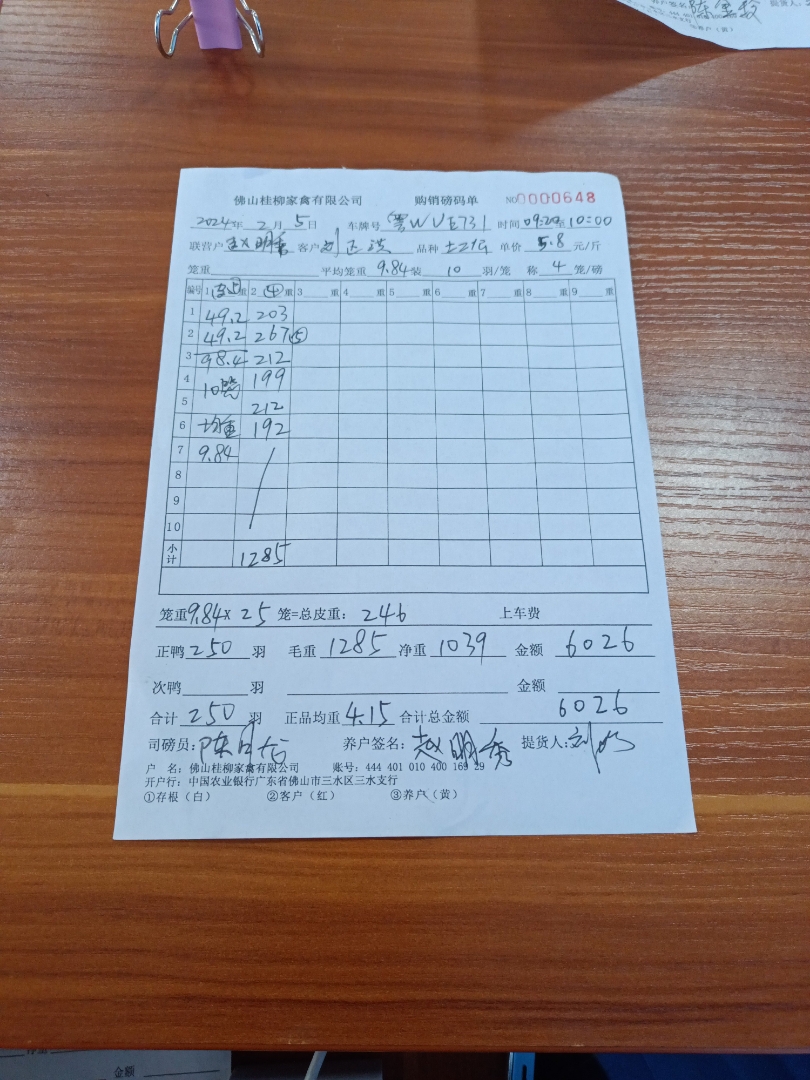 养户签名 提货人
养户（黄）
佛山桂柳家禽有限公司 购销磅码单 NO0000648
2024年 2月 5日 车牌号 粤WVE731 时间09:20至10:00
联营户 赵明秀 客户 刘正洪 品种 单价 5.8 元/斤
笼重 平均笼重 9.84 装 10 羽/笼 称 4 笼/磅
编号 1 皮 重 2 ④ 重 3 重 4 重 5 重 6 重 7 重 8 重 9 重
1 49.2 203
2 49.2 267⑤
3 98.4 212
4 10笼 199
5 212
6 均重 192
7 9.84
8
9
10
小计 1285
笼重9.84× 25 笼=总皮重： 246 上车费
正鸭 250 羽 毛重 1285 净重 1039 金额 6026
次鸭 羽 金额
合计 250 羽 正品均重 4.15 合计总金额 6026
司磅员： 陈 养户签名： 赵明秀 提货人：刘
户 名：佛山桂柳家禽有限公司 账号：444 401 010 400 169 29
开户行：中国农业银行广东省佛山市三水区三水支行
①存根（白） ②客户（红） ③养户（黄）
金额